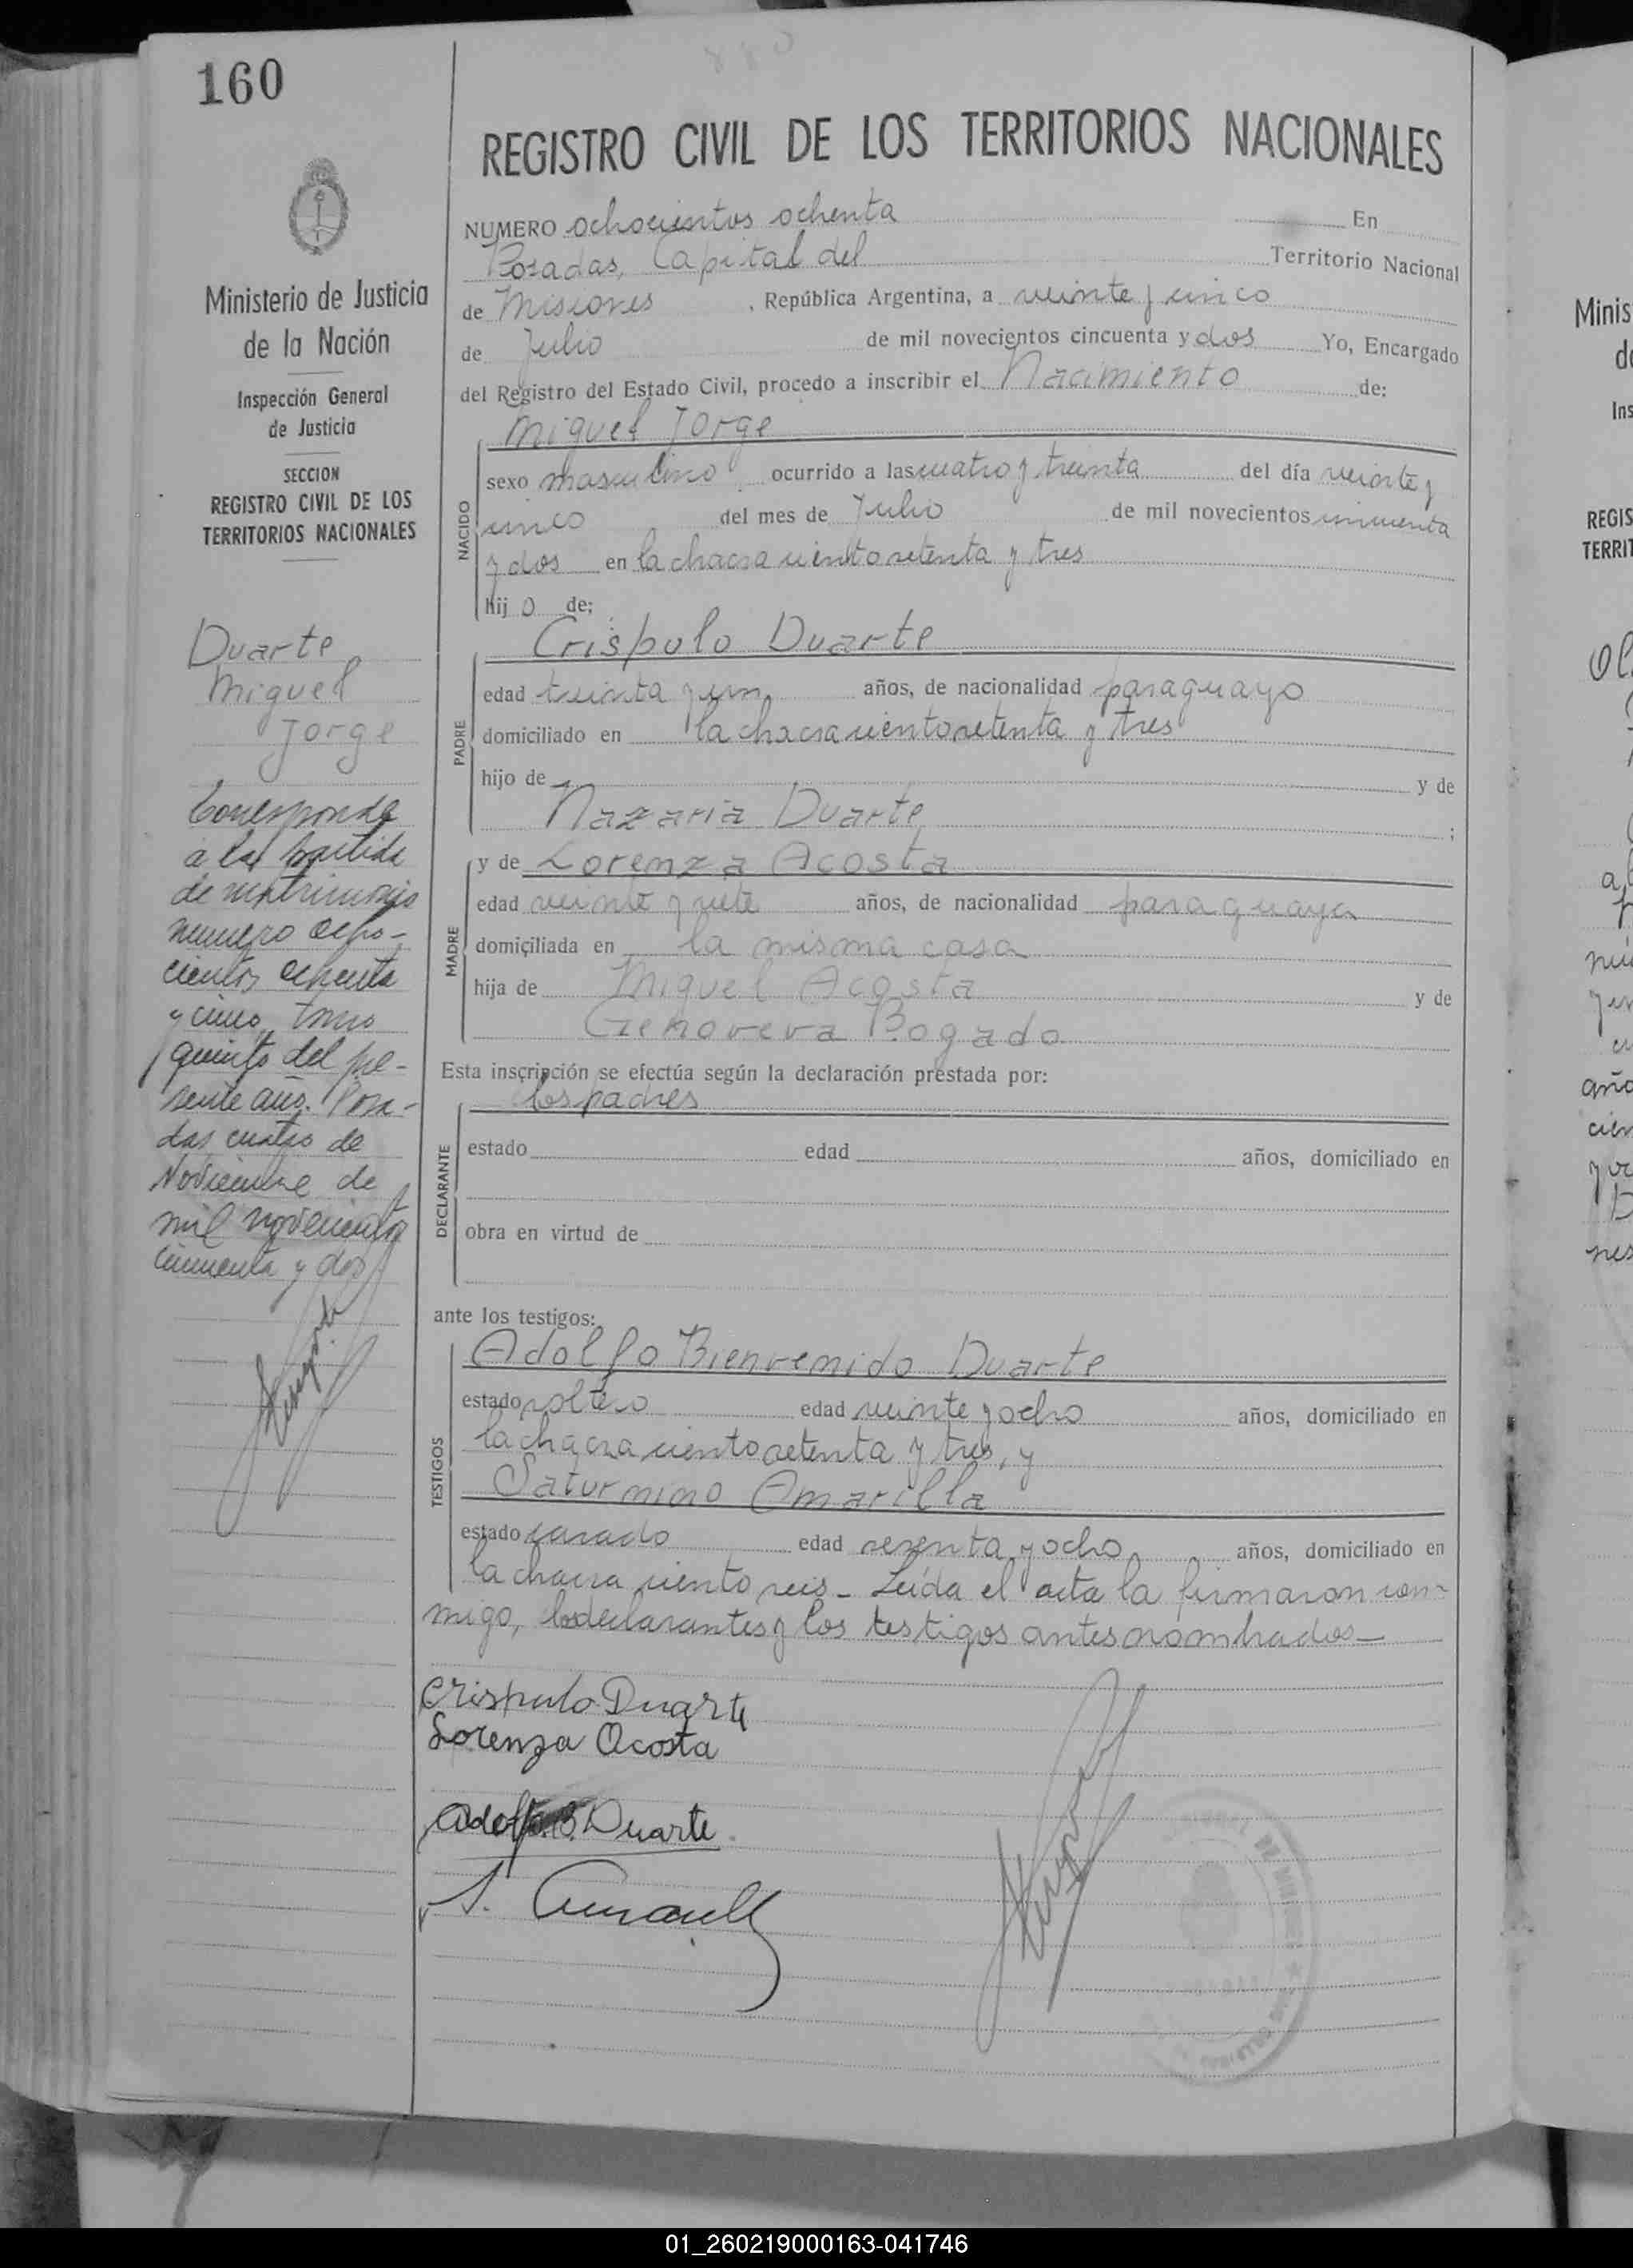 160
880
REGISTRO CIVIL DE LOS TERRITORIOS NACIONALES
Ministerio de Justicia
de la Nación
Inspección General
de Justicia
SECCION
REGISTRO CIVIL DE LOS
TERRITORIOS NACIONALES
Duarte
Miguel
Jorge
Corresponde
a la partida
de matrimonio
numero ocho-
cientos ochenta
y cinco, tomo
quinto del pre-
sente año. Posa-
das, cuatro de
Noviembre de
mil novecientos
cincuenta y dos
NUMERO ochocientos ochenta En
Posadas, Capital del Territorio Nacional
de Misiones , República Argentina, a veinte y cinco
de Julio de mil novecientos cincuenta y dos Yo, Encargado
del Registro del Estado Civil, procedo a inscribir el Nacimiento de:
Miguel Jorge
NACIDO
sexo masculino ocurrido a las cuatro y treinta del día veinte y
cinco del mes de Julio de mil novecientos cincuenta
y dos en la chacra ciento setenta y tres
hij o de:
Crispulo Duarte
PADRE
edad treinta y un años, de nacionalidad paraguayo
domiciliado en la chacra ciento setenta y tres
hijo de y de
Nazaria Duarte ;
y de Lorenza Acosta
MADRE
edad veinte y siete años, de nacionalidad paraguaya
domiciliada en la misma casa
hija de Miguel Acosta y de
Genoveva Bogado
Esta inscripción se efectúa según la declaración prestada por:
los padres
DECLARANTE
estado edad años, domiciliado en
obra en virtud de
ante los testigos:
Adolfo Bienvenido Duarte
TESTIGOS
estado soltero edad veinte y ocho años, domiciliado en
la chacra ciento setenta y tres, y
Saturnino Amarilla
estado casado edad sesenta y ocho años, domiciliado en
la chacra ciento seis - Leída el acta la firmaron con-
migo, los declarantes y los testigos antes nombrados -
Crispulo Duarte
Lorenza Acosta
Adolfo B. Duarte
S. Amarilla
Minis
REGIS
TERRIT
01_260219000163-041746